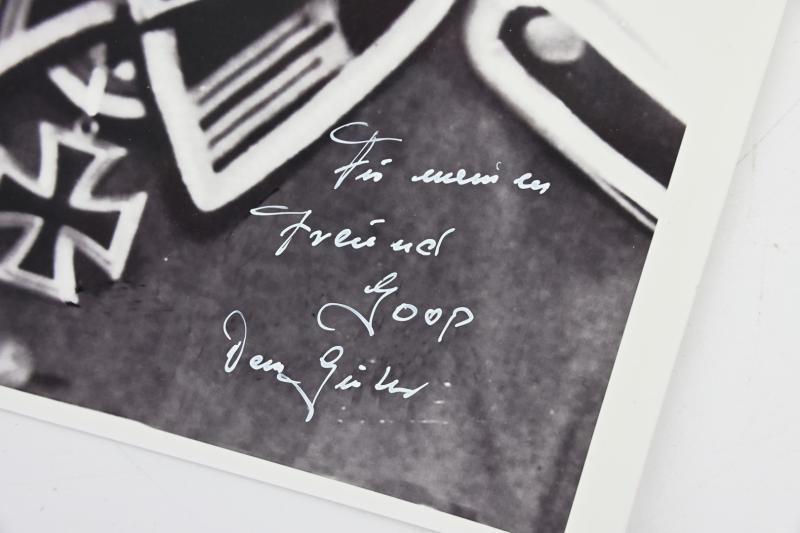 Für meinen
Freund
Goop
Dein Günter